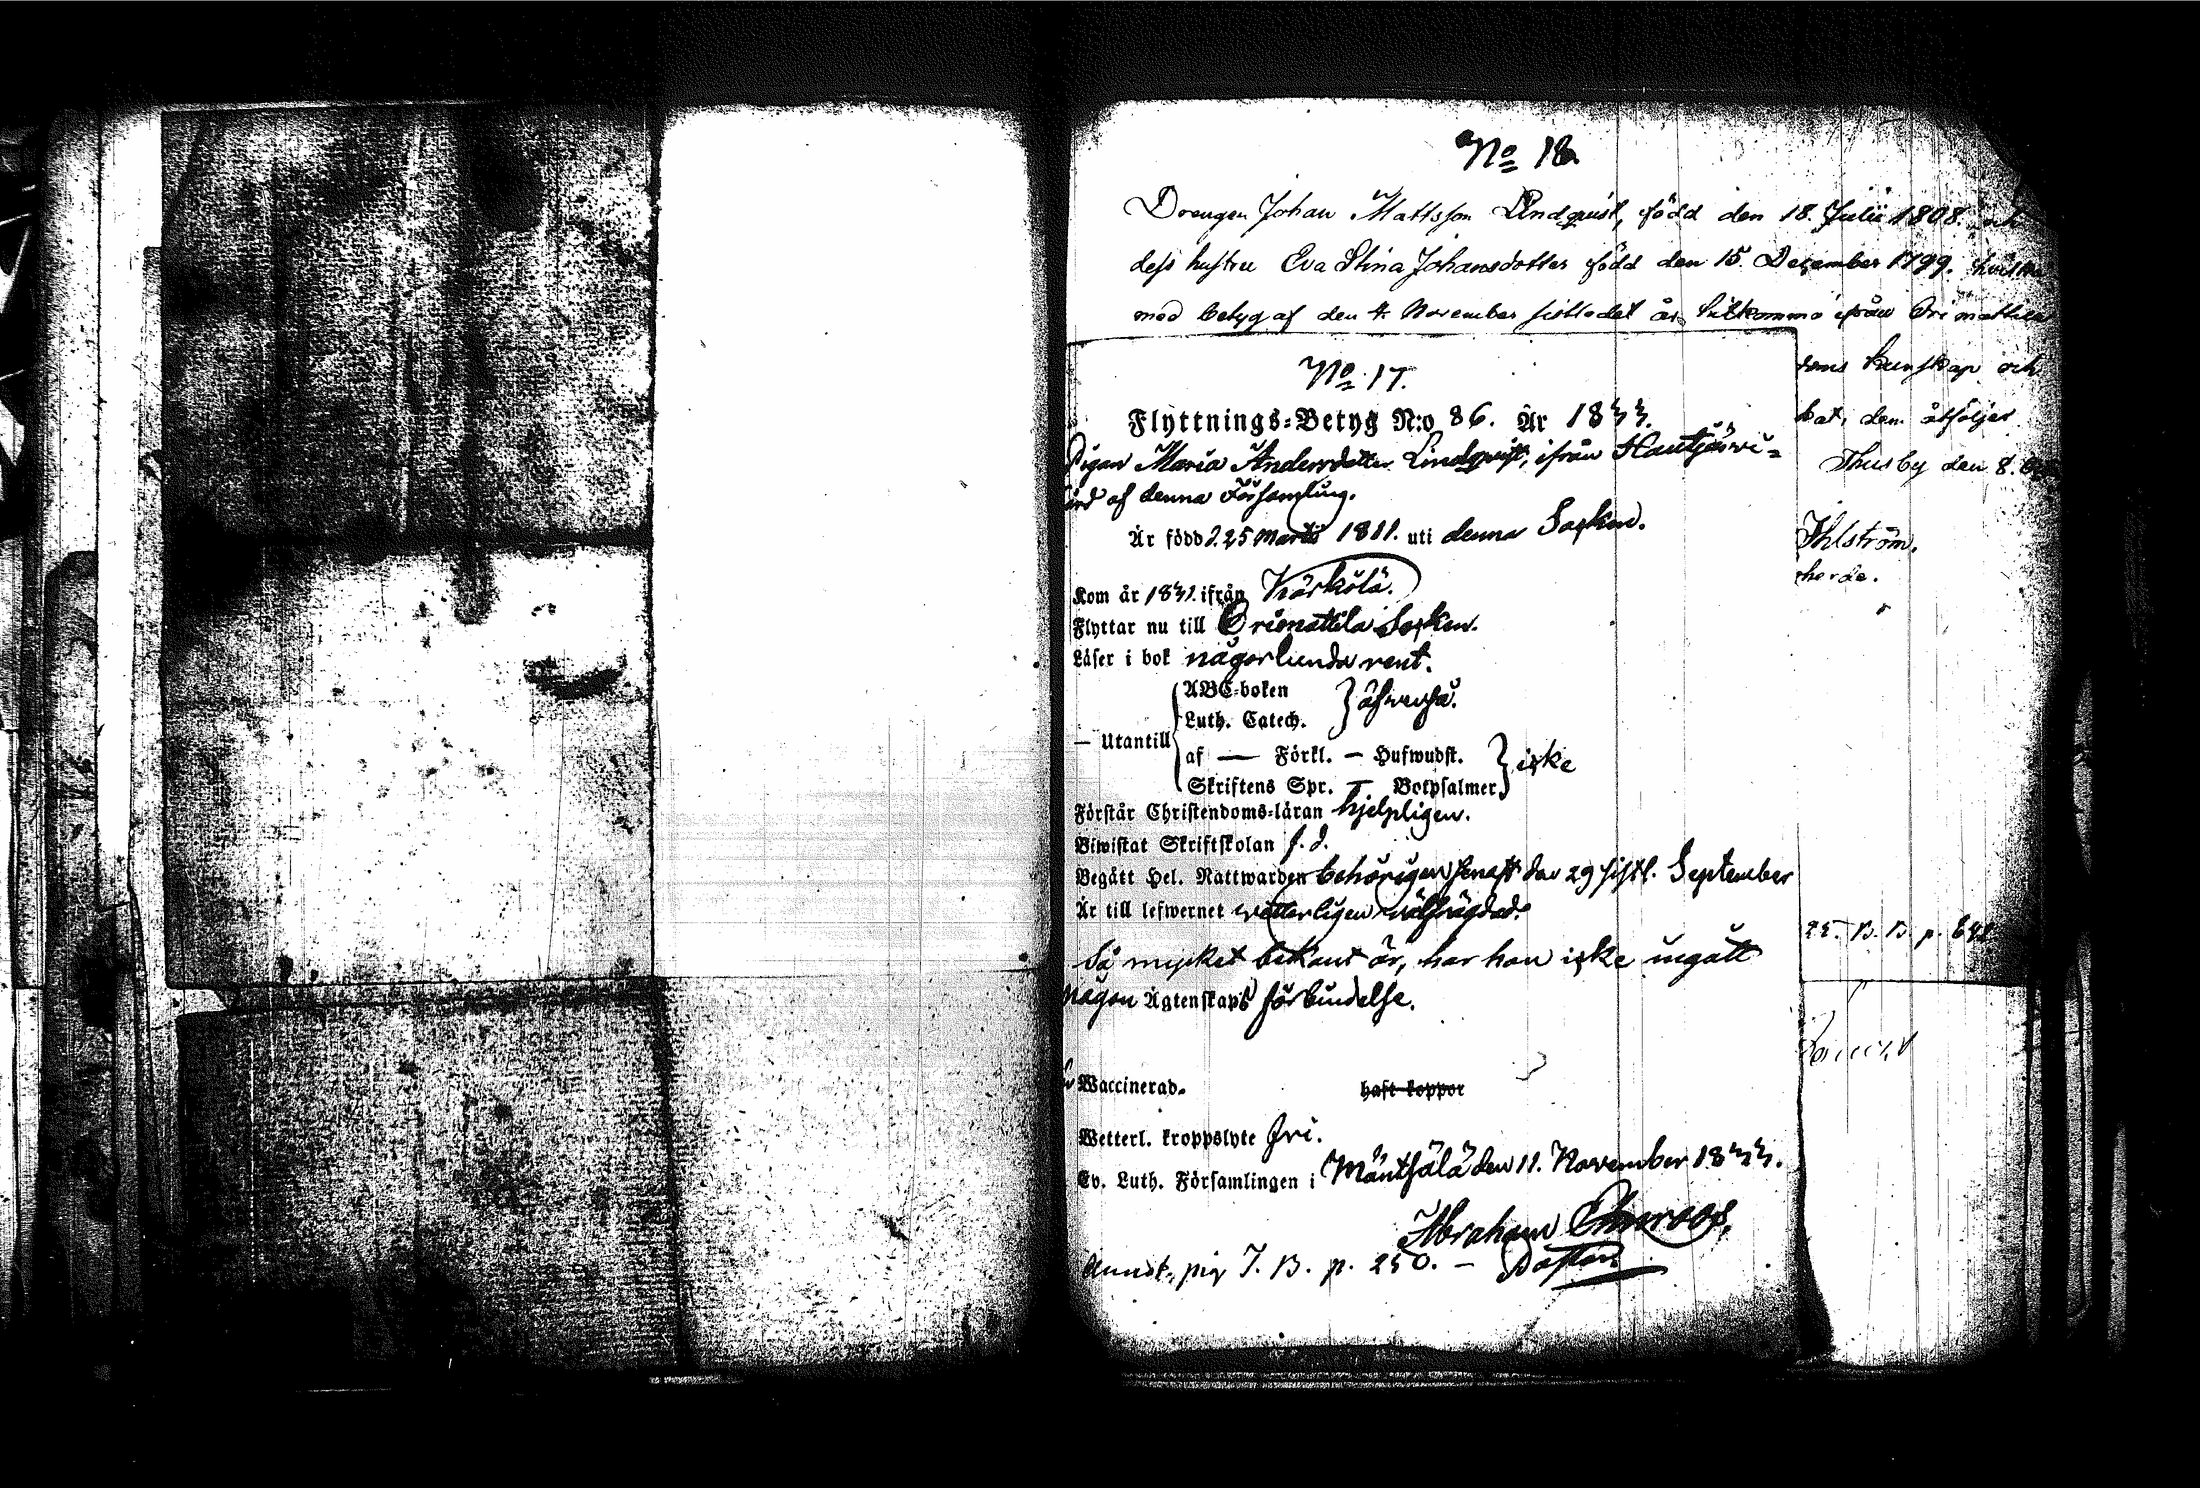 No 18.
Drengen Johan Mattsson Lindqvist, född den 18. Julii 1808.
dess hustru Eva Stina Johansdotter född den 15. December 1799.
med betyg af den 4. November sistledet år, ifrån Orimattila
No 17.
Flyttnings-Betyg N:o 86. År 1833.
Pigan Maria Andersdotter Lindqvist, ifrån Hautjärvi-
af denna Församling.
Är född d. 25 Martii 1811. uti denna Socken.
Kom år 1831. ifrån Kärkölä.
Flyttar nu till Orimattila Socken.
Läser i bok någorlunda rent.
ABC-boken
Luth. Catech. } äfvenså.
— Utantill
af — Förkl. — Hufwudst.
Skriftens Spr. — Botpsalmer } icke
Förstår Christendoms-läran hjelpligen.
Biwistat Skriftskolan f. d.
Begått Hel. Nattwarden behörigen senast den 29 sistl. September
Är till lefwernet vetterligen välfrägdad.
Så mycket bekant är, har hon icke ingått
någon Ägtenskaps förbindelse.
Waccinerad. haft koppor
Wetterl. kroppslyte fri.
Ev. Luth. Församlingen i Mäntsälä den 11. November 1833.
Abraham
Pastor
pig I. B. p. 250. —
kunskap och
dem åtföljer
Thusby den 8.
Ihlström.
herde.
B. B. p.